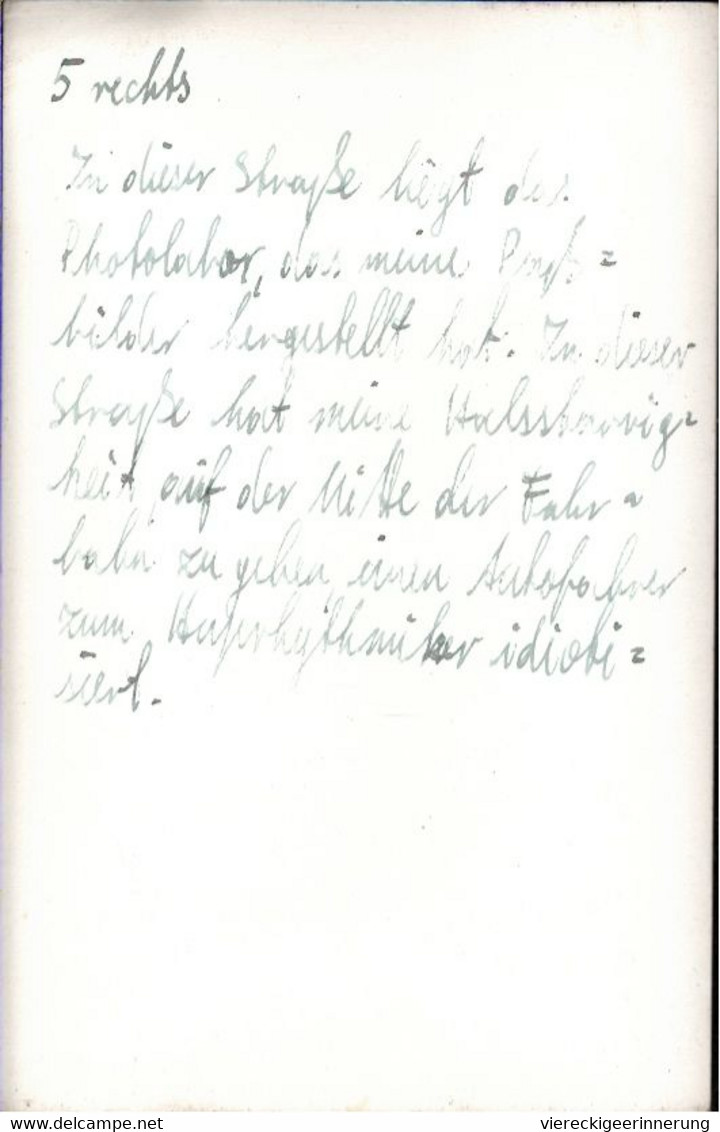 5 rechts
In dieser Straße liegt das
Photolabor, das meine Paß=
bilder hergestellt hat. In dieser
Straße hat meine Halsstarrig=
keit, auf der Mitte der Fahr=
bahn zu gehen, einen Autofahrer
zum Huprhythmiker idioti=
siert.
delcampe.net
viereckigeerinnerung